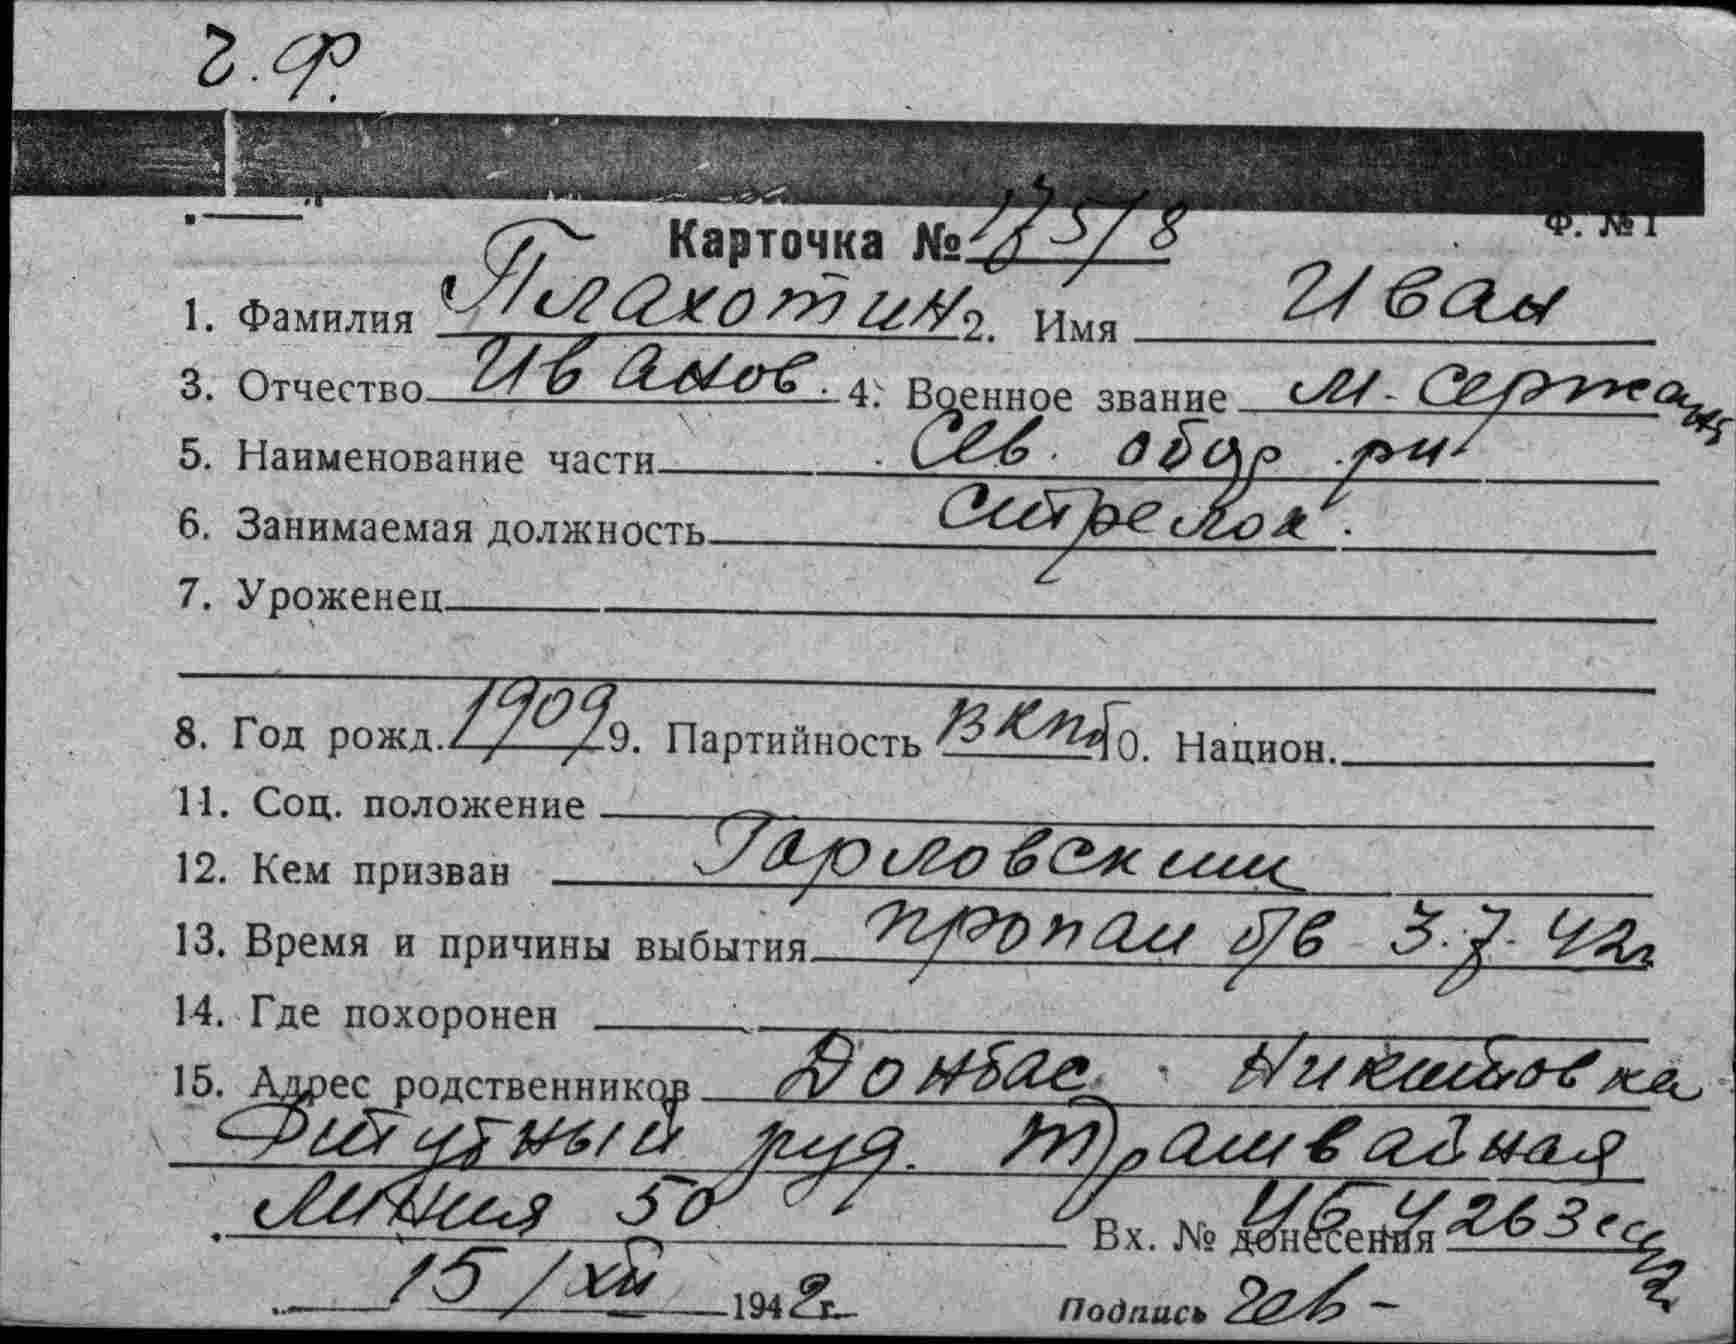 Ч.Ф.
Ф. № 1
Карточка № 175/8
1. Фамилия Плахотин 2. Имя Иван
3. Отчество Иванов. 4. Военное звание м. сержант
5. Наименование части Сев. обор. р-н
6. Занимаемая должность стрелок.
7. Уроженец
8. Год рожд. 1909 9. Партийность ВКПб 10. Национ.
11. Соц. положение
12. Кем призван Горловским
13. Время и причины выбытия пропал б/в 3.7.42г
14. Где похоронен
15. Адрес родственников Донбас. Никитовка
руд. Трамвайная
линия 50 Вх. № донесения 4263
15/XII 1942г.
Подпись